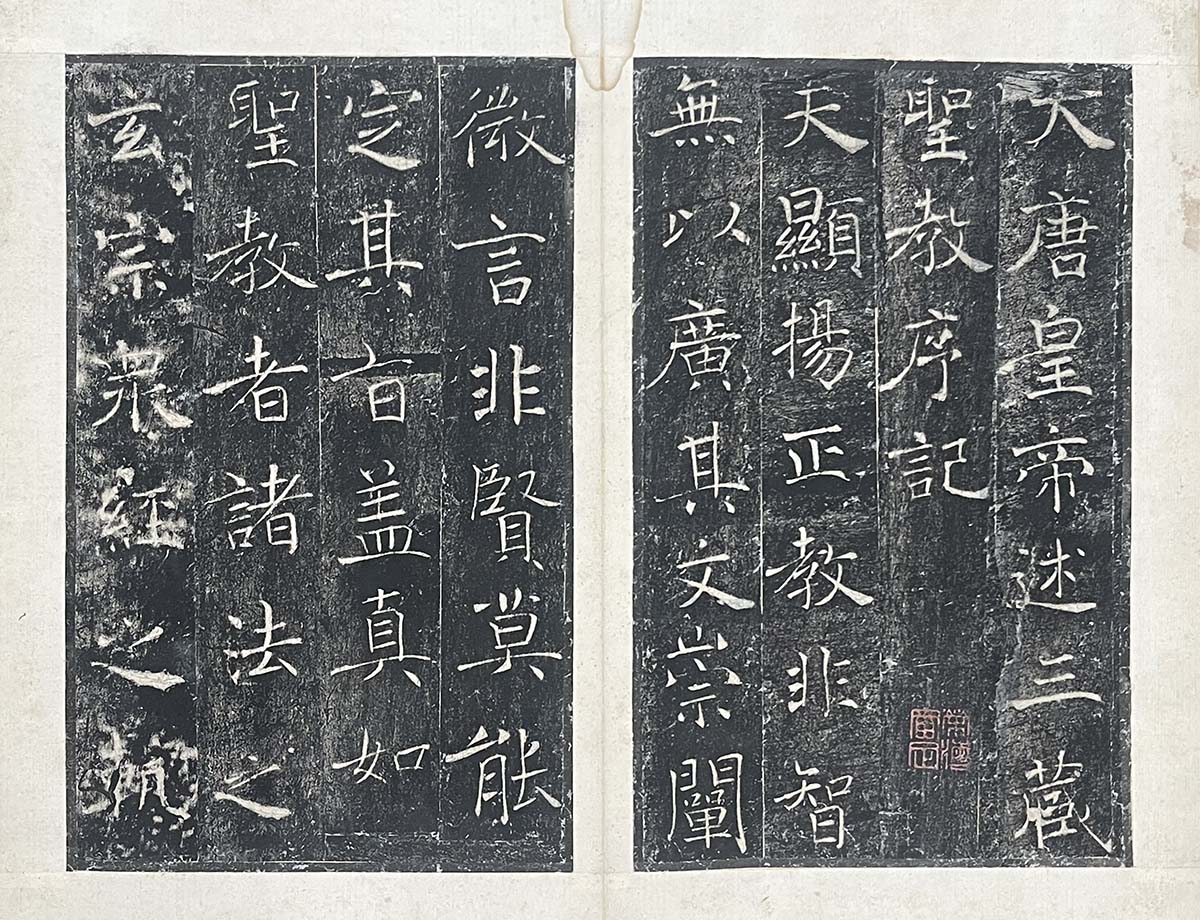 大唐皇帝述三藏
聖教序記
天顯揚正教非智
無以廣其文崇闡
微言非賢莫能
定其旨盖真如
聖教者諸法之
玄宗眾經之軌